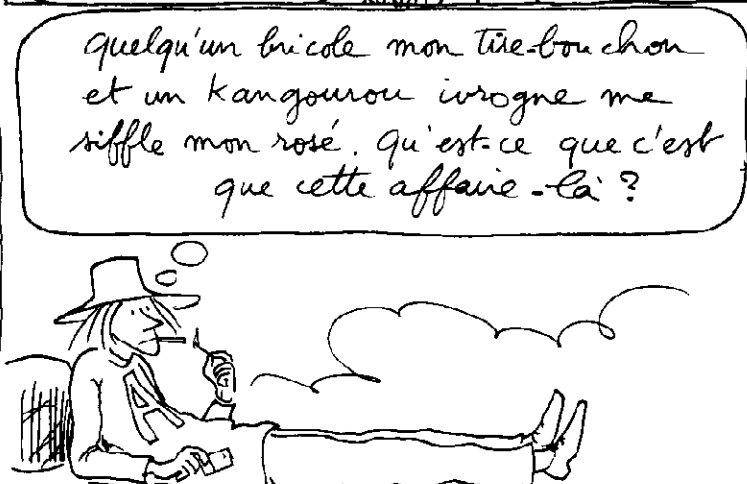 quelqu'un bricole mon tire-bouchon
et un kangourou ivrogne me
siffle mon rosé. Qu'est-ce que c'est
que cette affaire-là ?
A